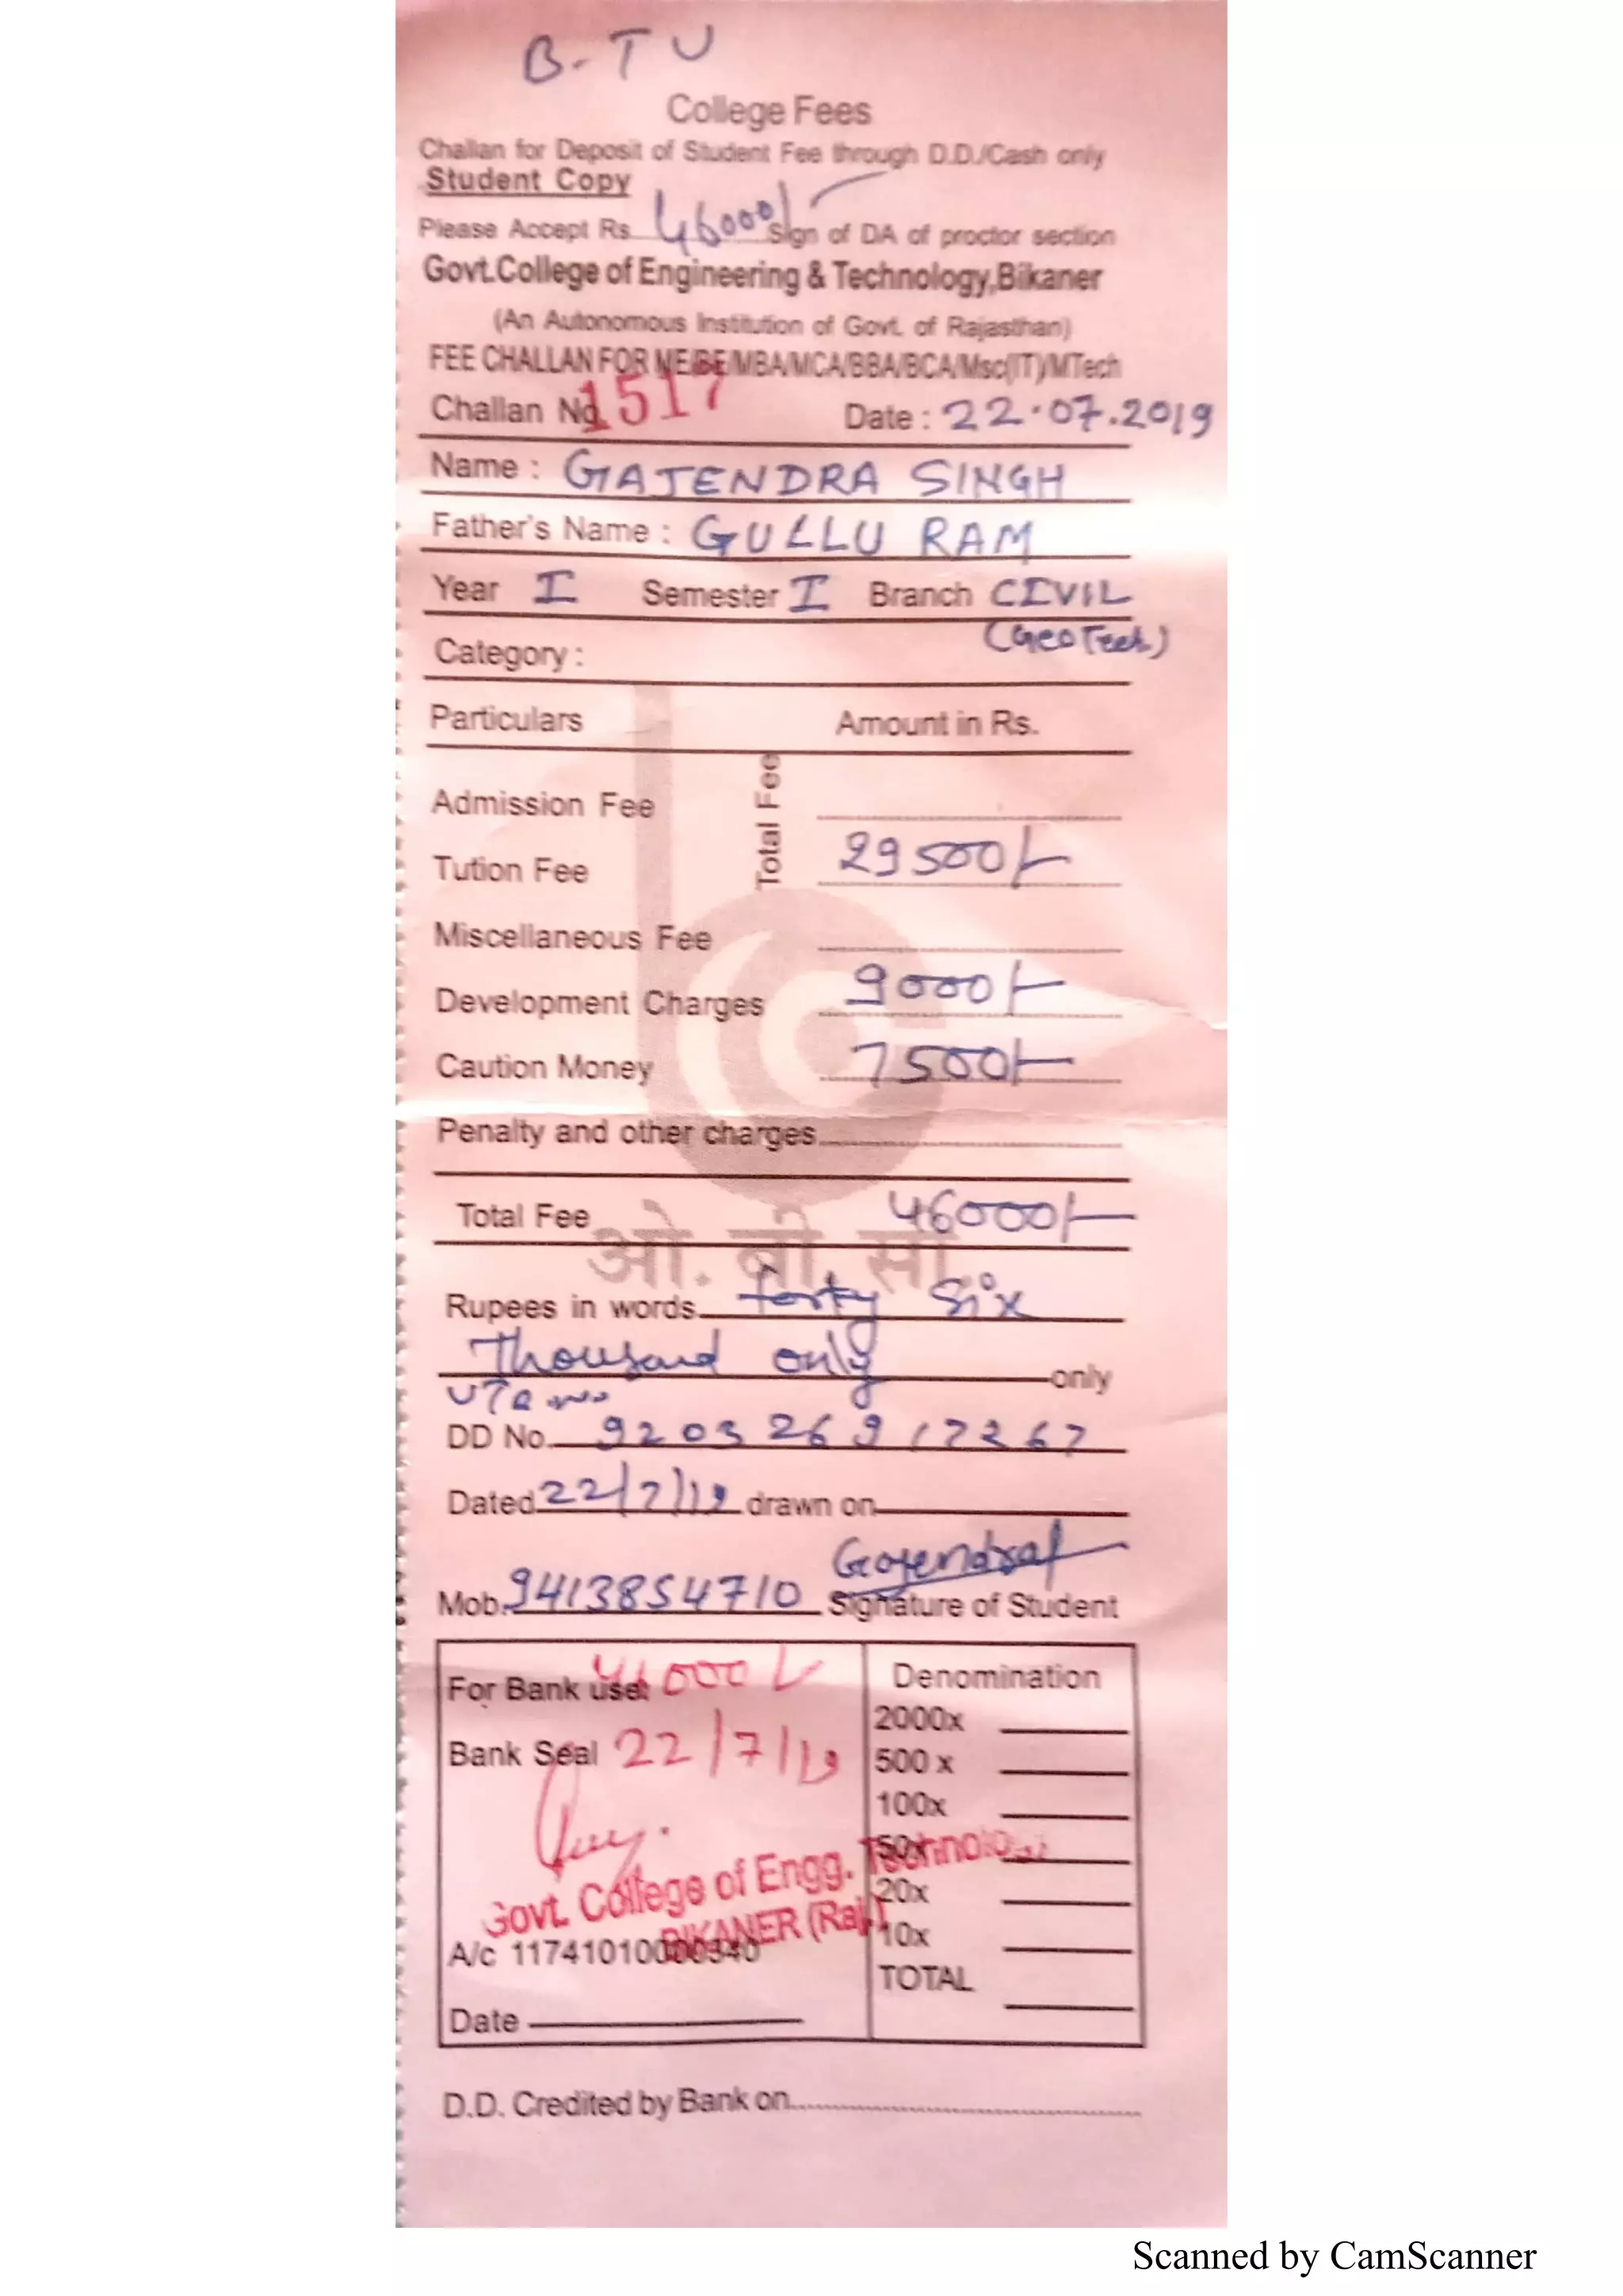 B-TU
College Fees
Challan for Deposit of Student Fee through D.D./Cash only
Student Copy
Please Accept Rs. 46000/- Sign of DA of proctor section
Govt.College of Engineering & Technology,Bikaner
(An Autonomous Institution of Govt. of Rajasthan)
FEE CHALLAN FOR ME/BE/MBA/MCA/BBA/BCA/Msc(IT)/MTech
Challan No. 1517 Date : 22.07.2019
Name : GAJENDRA SINGH
Father's Name : GULLU RAM
Year I Semester I Branch CIVIL
(GeoTech)
Category :
Particulars Amount in Rs.
Total Fee
Admission Fee
Tution Fee 29500/-
Miscellaneous Fee
Development Charges 9000/-
Caution Money 7500/-
Penalty and other charges
Total Fee 46000/-
ओ. बी. सी.
Rupees in words forty six
Thousand only only
UTR no
DD No. 920326917267
Dated 22/7/19 drawn on
Gajendra
Mob. 9413854710 Signature of Student
For Bank use: 46000/- Denomination
2000x
Bank Seal 22/7/19
500 x
100x
50x
Govt. College of Engg. Technology
20x
BIKANER (Raj.)
10x
A/c 11741010000340
TOTAL
Date
D.D. Credited by Bank on
Scanned by CamScanner